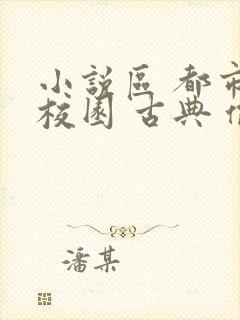 小說區 都市
校園 古典
潘某